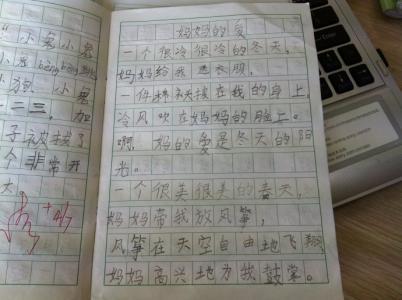 "小老小
小兔bāng bāng
小狗 小老
二二三,加
子被拔了
个非常开
大
妈妈的爱
一个很冷很冷的冬天,
妈妈给我送衣服,
一件棉袄披在我的身上,
冷风吹在妈妈的脸上。
啊,妈的爱是冬天的阳
光。
一个很美很美的春天,
妈妈带我放风筝,
风筝在天空自由地飞翔
妈妈高兴地为我鼓掌。